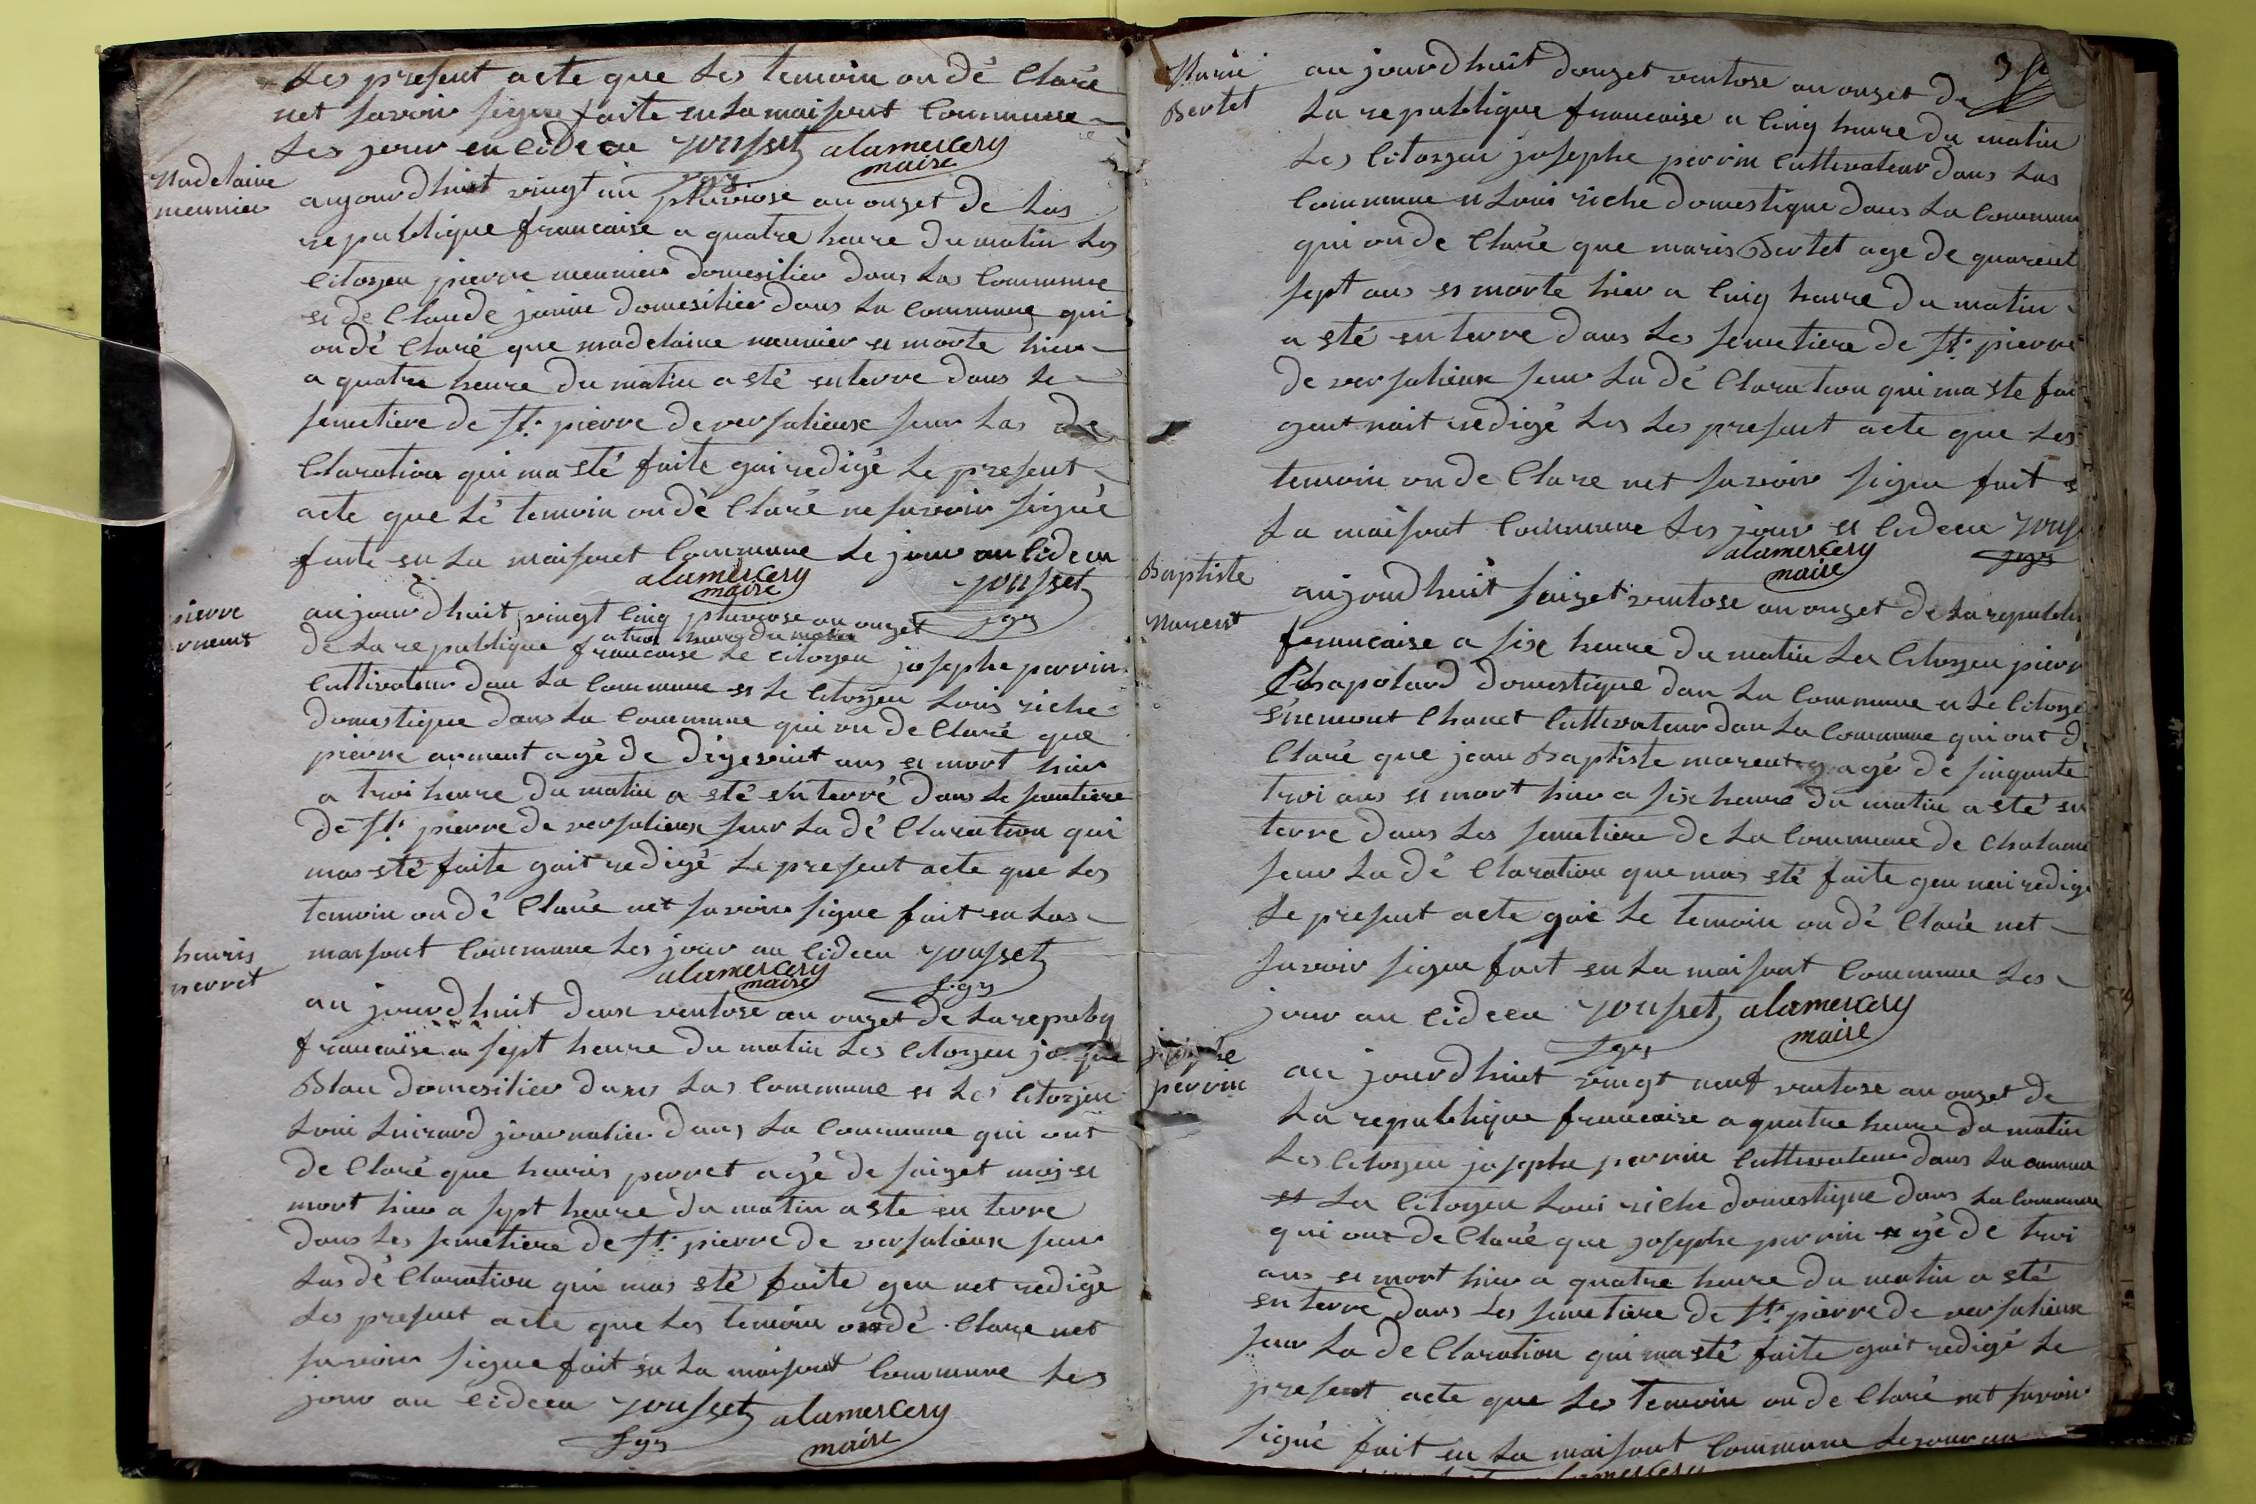 Les present acte que Les temoin on dé Claré
net savoir signe faite en La maisont Commune
Les jour en cideau yousset alamercery
sgrs maire
Madelaine
meunier
aujourdhuit vingt un pluviose an onzet de Las
republique francaise a quatre heure du matin Les
Citoyen pierre meunier domesilier dans Las Commune
et de Claude janin domesilier dans La Commune qui
on dé Claré que madelaine meunier et morte hier
a quatre heure du matin a eté enterre dans Le
semetiere de St. pierre de versalieux seur Las de
Claration qui ma eté faite gai redigé Le present
acte que Lé temoin on dé Claré ne savoir signé
faite en La maisont Commune Le jour an cideau
alamercery yousset
maire sgrs
pierre
aujourdhuit vingt cinq pluviose an onzet
a troi heure du matin
de La republique francaise Le citoyen josephe perrin
Cultivateur dan La Commune et Le Citoyen Louis riche
domestique dans La Commune qui on de Claré que
pierre arment agé de dizevint ans et mort hier
a troi heure du matin a eté enterré dans Le semetiere
de St. pierre de versalieux seur La dé Claration qui
mas eté faite gait redigé Le present acte que Les
temoin on dé Claré net savoir signe fait en Las
maisont Commune Les jour an cideau yousset
alamercery
maire sgrs
henris
perret
au jourdhuit deux ventose an onzet de La repubq
francaise a sept heure du matin Les Citoyen
Blan domesilier dans Las Commune et Les Citoyen
Loui Luirard journalier dans La Commune qui ont
de Claré que henris perret agé de saizet mois et
mort hier a sept heure du matin a ete en terre
dans Les semetiere de St. pierre de versalieux seur
Las dé Claration qui mas eté faite gen net redigé
Les present acte que Les temoin on dé Clare net
savoir signe fait en La maisont Commune Les
jour an cideau yousset alamercery
sgrs maire
3
Marie
Bertet
au jourdhuit douzet ventose an onzet de
La republique francaise a cinq heure du matin
Les Citoyen josephe perrin Cultivateur dans Las
Commune et Loui riche domestique dans La Commun
qui on de Claré que maris Bertet age de quarent
sept ans et morte hier a cinq heure du matin
a eté en terre dans Les semetiere de St. pierre
de versalieux seur La dé Claration qui ma ete fai
gent nait redigé Les Les present acte que Les
temoin on de Clare net savoir signe fait
La maisont Commune Les jour et cideau yous
alamercery
maire sgrs
Baptiste
Marent
aujourdhuit saizet ventose an onzet de La republiq
francaise a six heure du matin Les Citoyen pierr
Chapolard domestique dan La Commune et Le Citoye
Chanet Cultivateur dan La Commune qui ont d
Claré que jean Baptiste marent agé de sinquante
troi ans et mort hier a six heure du matin a eté en
terre dans Les semetiere de La Commune de Chalame
seur La dé Claration que mas eté faite gen nai redigé
Le present acte que Le temoin on dé Claré net
savoir signe fait en La maisont Commune Les
jour an cideau yousset alamercery
sgrs maire
josephe
perrin
au jourdhuit vingt neuf ventose an onzet de
La republique francaise a quatre heure du matin
Les Citoyen josephe perrin Cultivateur dans La
et La Citoyen Loui riche domestique dans La Commune
qui ont de Claré que josephe perrin agé de troi
ans et mort hier a quatre heure du matin a eté
en terre dans Les semetiere de St. pierre de versalieux
seur La de Claration qui ma eté faite gait redigé Le
present acte que Les temoin on de Claré net savoir
signé fait en La maisont Commune Le jour an
alamercery